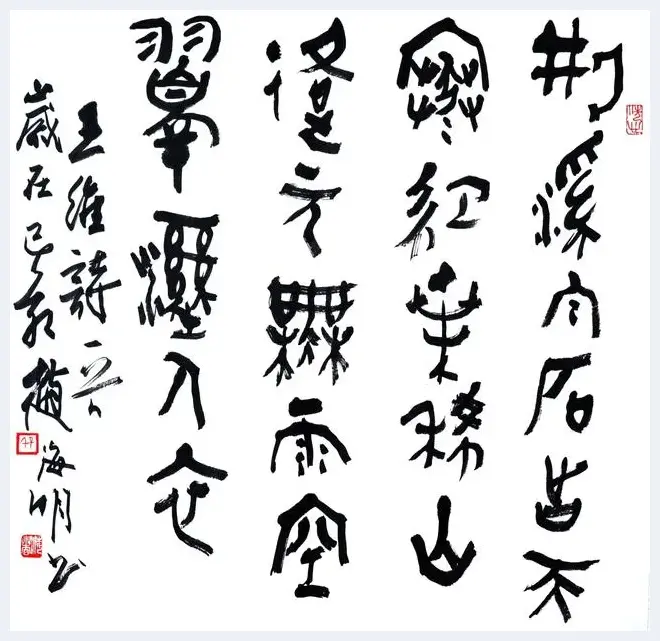 荆溪白石出天
寒紅葉稀山
路元無雨空
翠濕人衣
王維詩一首
歲在己亥趙海明書